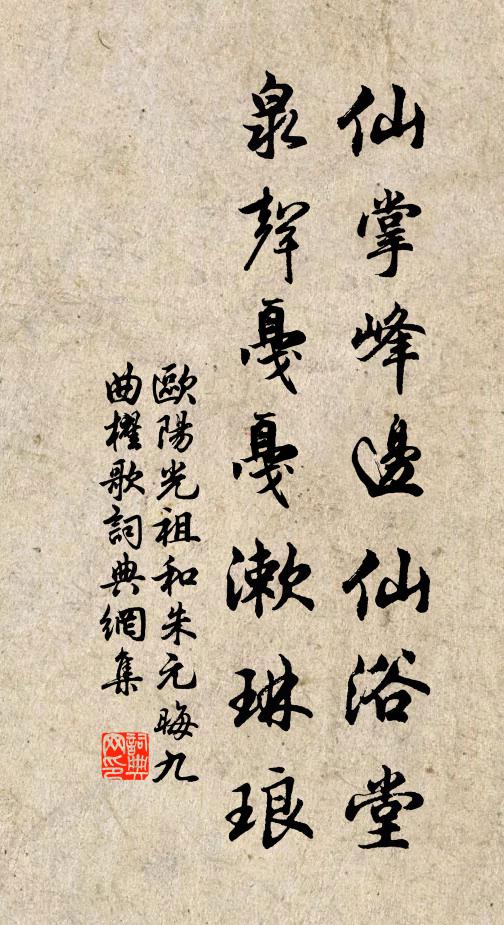 仙掌峰邊仙浴堂
泉聲戛戛漱琳琅
歐陽光祖和朱元晦九
曲櫂歌詞典網集
詞典網印